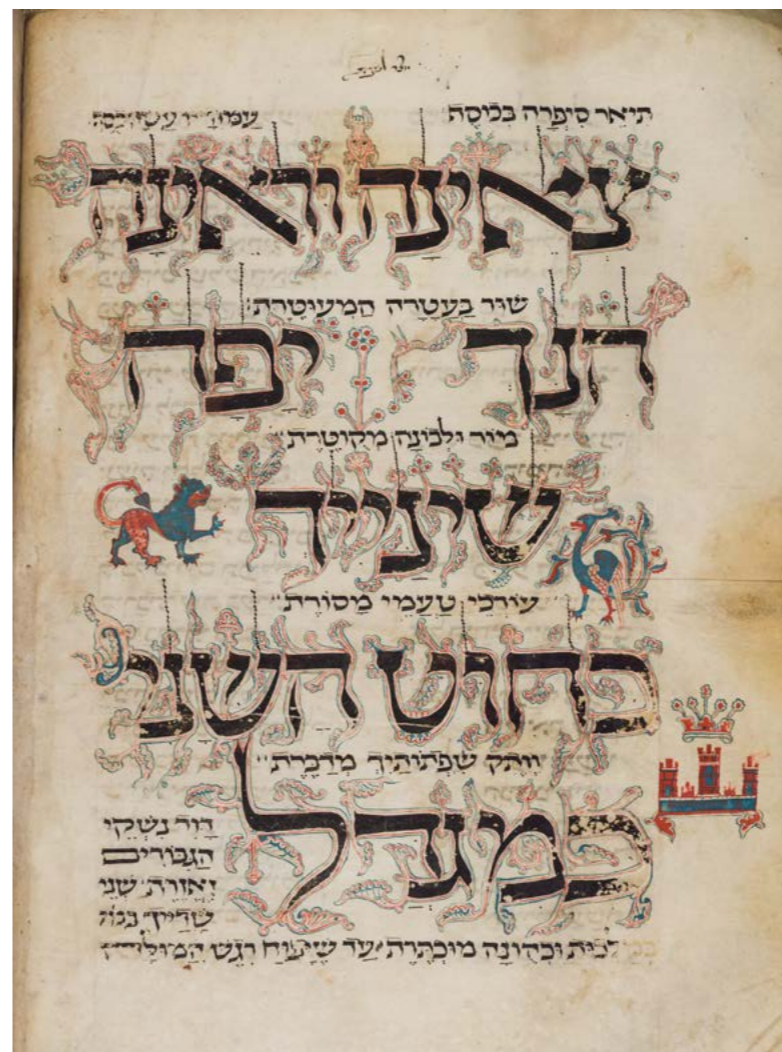 תיאר סיפרה בכוסה עמודיו עשה כסף
צאינה וראינה
שור בעטרה המעוטרת׃
הנך יפה
מיור ולבונה מקוטרת
שינייך
עורכי טעמי מסורת
כחוט השני
וותק שפתותיך מדברת
כמגדל
דור נשקי
הגבורים
ואזורה שני
שדייך כמה
וכהונה מוכתרת עד שיפוח רגש המולה